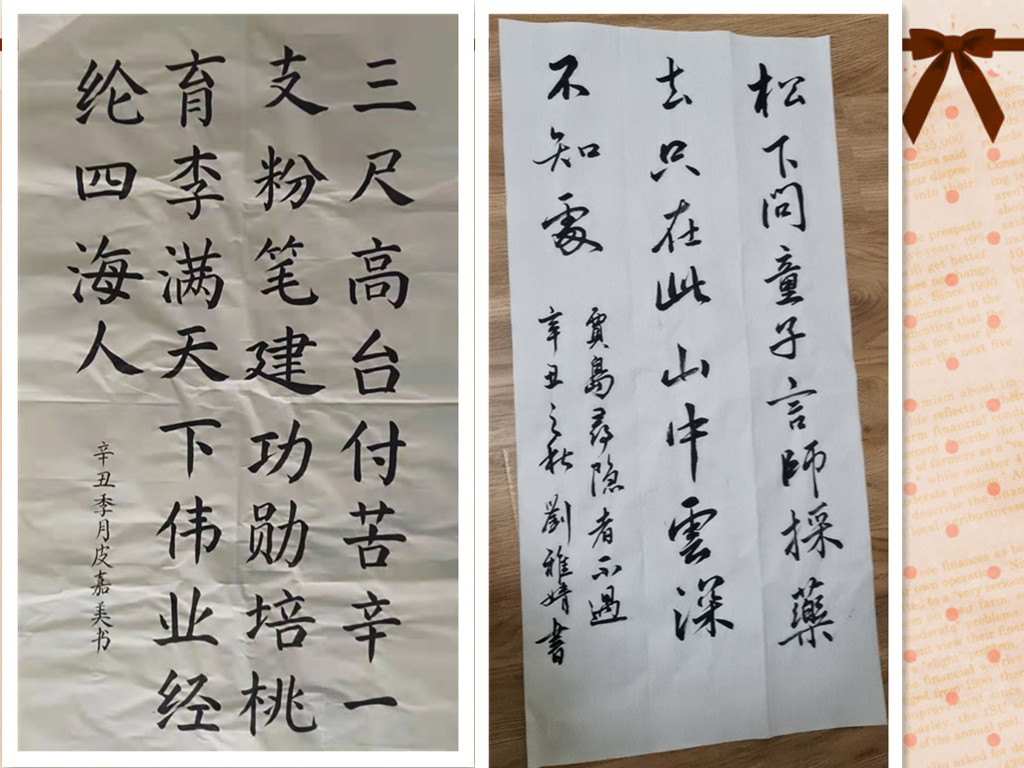 三尺高台付苦辛一
支粉笔建功勋培桃
育李满天下伟业经
纶四海人
辛丑季月皮嘉美书
松下問童子言師採藥
去只在此山中雲深
不知處
賈島尋隐者不遇
辛丑之秋劉雅婧書